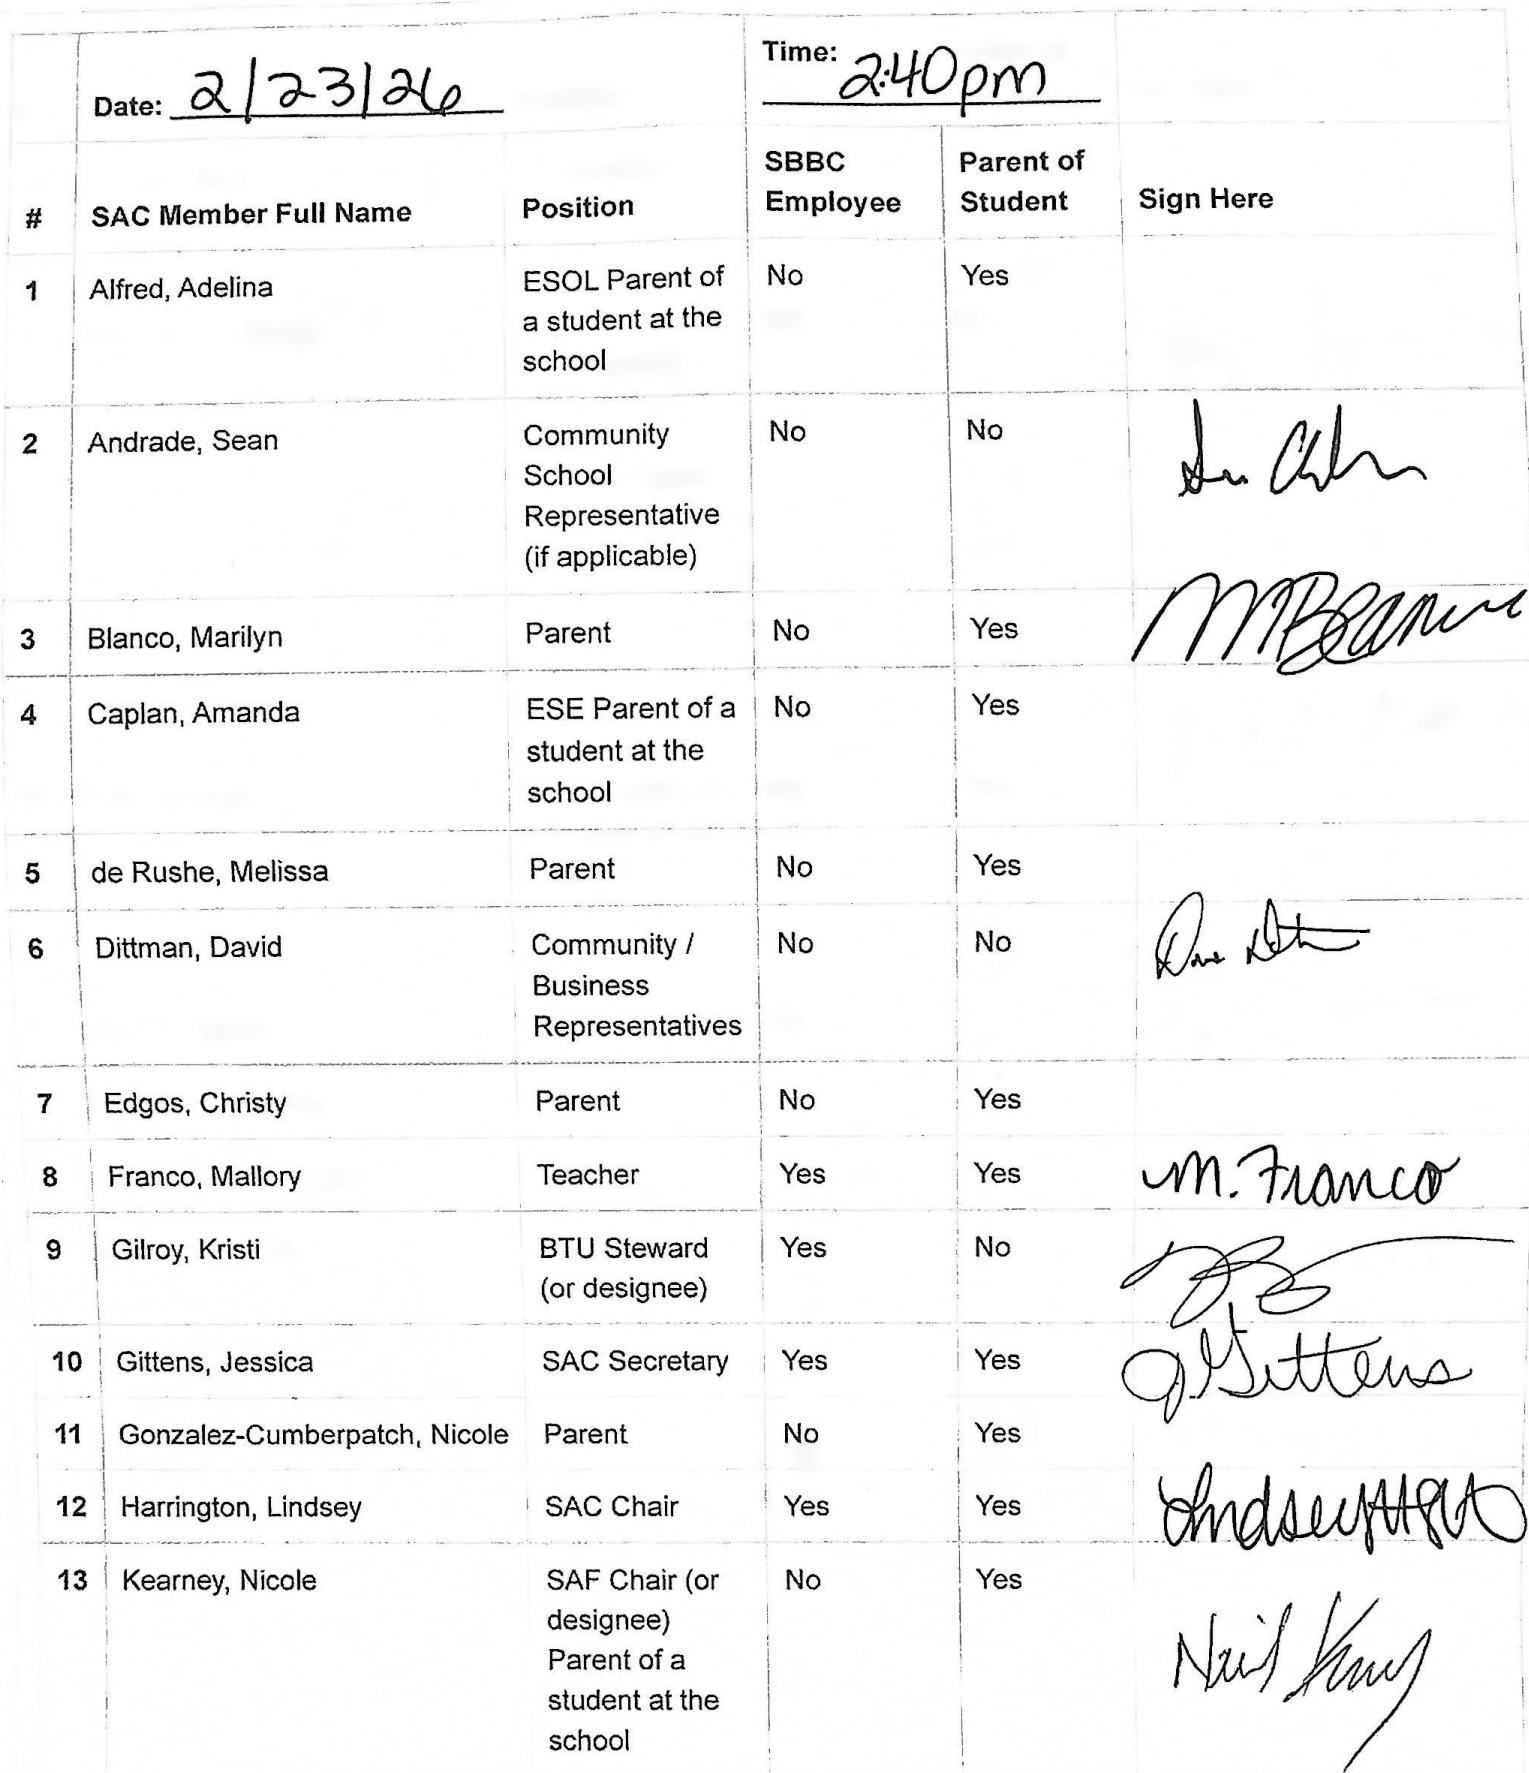 Date: 2/23/26 Time: 2:40pm
# SAC Member Full Name Position SBBC Employee Parent of Student Sign Here
1 Alfred, Adelina ESOL Parent of No Yes
a student at the
school
2 Andrade, Sean Community No No
School
Representative
(if applicable)
3 Blanco, Marilyn Parent No Yes
4 Caplan, Amanda ESE Parent of a No Yes
student at the
school
5 de Rushe, Melissa Parent No Yes
6 Dittman, David Community / No No
Business
Representatives
7 Edgos, Christy Parent No Yes
8 Franco, Mallory Teacher Yes Yes M. Franco
9 Gilroy, Kristi BTU Steward Yes No
(or designee)
10 Gittens, Jessica SAC Secretary Yes Yes J. Gittens
11 Gonzalez-Cumberpatch, Nicole Parent No Yes
12 Harrington, Lindsey SAC Chair Yes Yes Lindsey
13 Kearney, Nicole SAF Chair (or No Yes
designee)
Parent of a
student at the
school